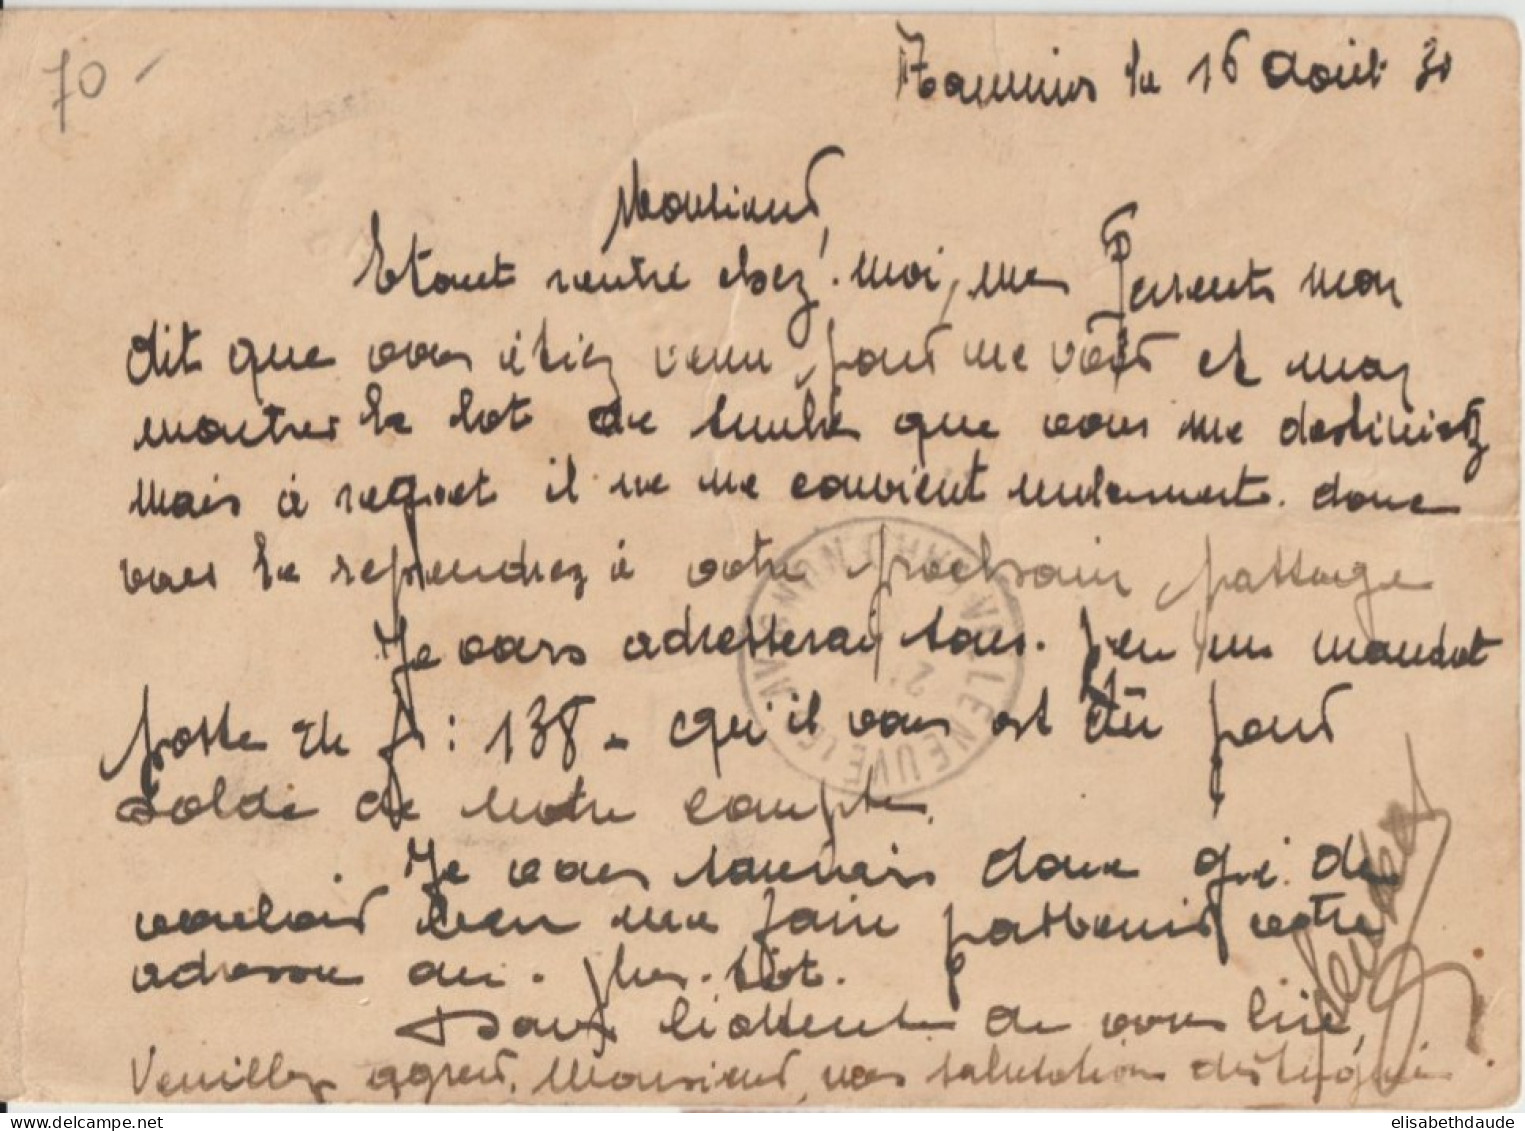 70 -
le 16 Août 30
Monsieur,
Etant rentré chez moi, mes Parents mon
dit que vous étiez venu pour me voir et mon
montrer le lot de que vous me destiniez
mais à regret il ne me convient nulement. donc
vous le reprendrez à votre prochain passage
Je vous adresserai sous. peu un mandat
poste de fr: 138 - qu'il vous est dû pour
solde de notre compte.
Je vous donc gré. de
vouloir bien me faire parvenir votre
adresse au. plus. tôt.
Dans l'attente de vous lire,
Veuillez agréer, Monsieur, mes salutations distinguées
VILLENEUVE LES AVIGNON
elisabethdaude